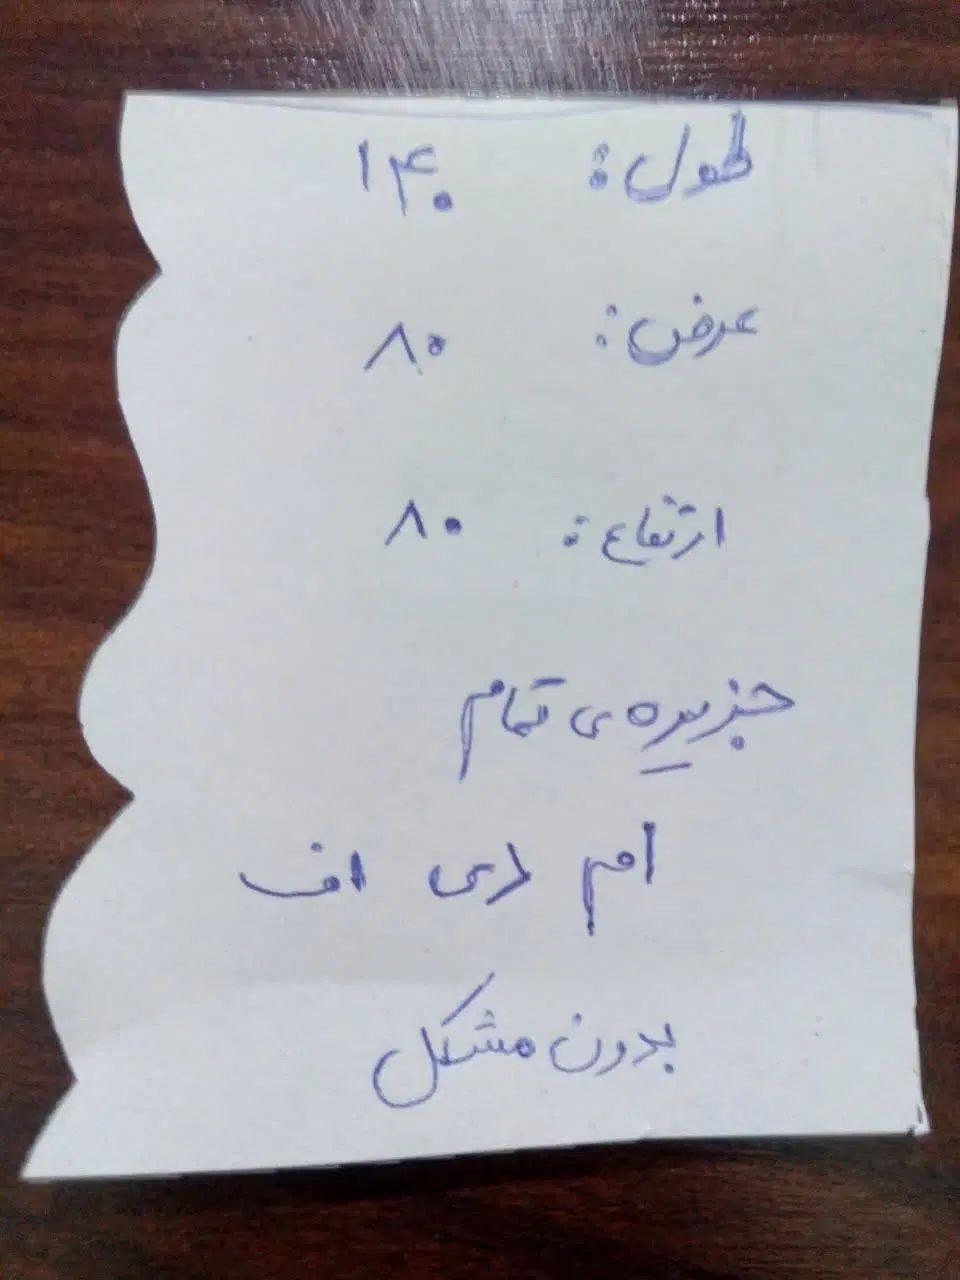 طول: ۱۴۰
عرض: ۸۰
ارتفاع: ۸۰
جزیره‌ی تمام
ام دی اف
بدون مشکل